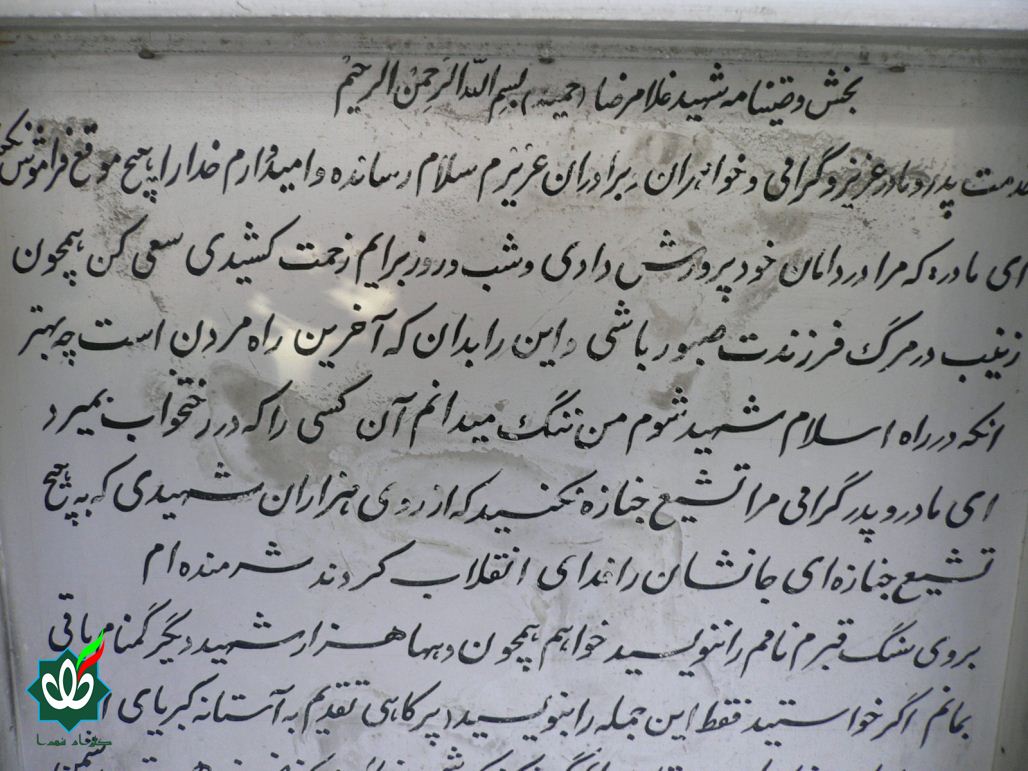 بخش وصیتنامه شهید غلامرضا (حمید) بسم الله الرحمن الرحیم
خدمت پدر و مادر عزیز و گرامی و خواهران و برادران عزیزم سلام رسانده و امیدوارم خدا را هیچ موقع فراموش
ای مادر: که مرا در دامان خود پرورش دادی و شب و روز برایم زحمت کشیدی سعی کن همچون
زینب در مرگ فرزندت صبور باشی و این را بدان که آخرین راه مردن است چه بهتر
انکه در راه اسلام شهید شوم من ننگ میدانم آن کسی را که در رختخواب بمیرد
ای مادر و پدر گرامی مرا تشیع جنازه نکنید که از روی هزاران شهیدی که به هیچ
تشیع جنازه‌ای جانشان را فدای انقلاب کردند شرمنده ام
بروی سنگ قبرم نامم را ننویسید خواهم همچون دهها هزار شهید دیگر گمنام باقی
بمانم اگر خواستید فقط این جمله را بنویسید (پر کاهی تقدیم به آستانه کبریای